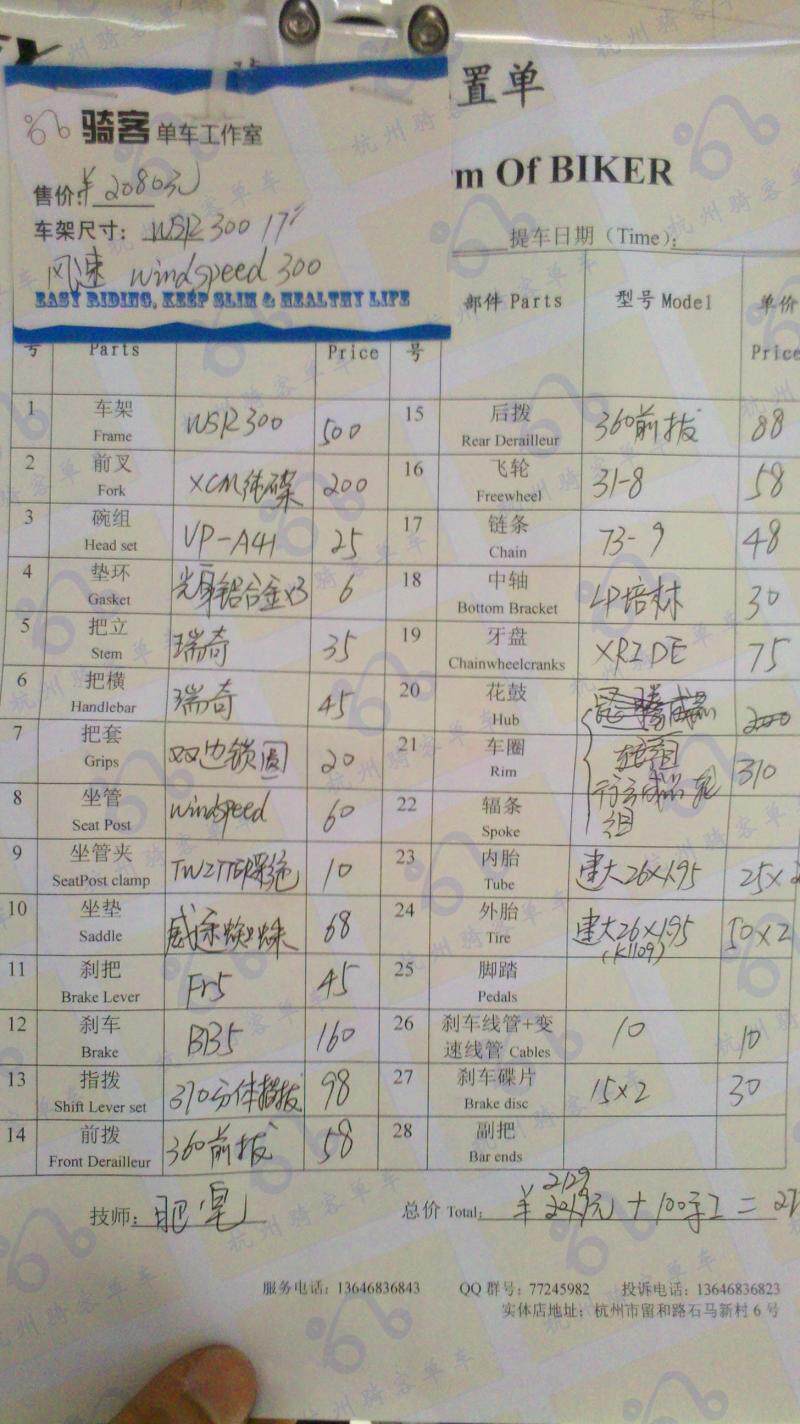 骑客 单车工作室
售价:¥ 2080元
车架尺寸: WSR 300 17"
风速 windspeed 300
EASY RIDING, KEEP SLIM & HEALTHY LIFE
置单
m Of BIKER
提车日期（Time）:
号 Parts Price 号 部件 Parts 型号 Model 单价 Price
1 车架 Frame WSR 300 500
2 前叉 Fork XCM纯碟 200
3 碗组 Head set VP-A41 25
4 垫环 Gasket 光身铝合金x3 6
5 把立 Stem 瑞奇 35
6 把横 Handlebar 瑞奇 45
7 把套 Grips 双边锁圆 20
8 坐管 Seat Post windspeed 60
9 坐管夹 SeatPost clamp TWITTER 10
10 坐垫 Saddle 68
11 刹把 Brake Lever Fr5 45
12 刹车 Brake BB5 160
13 指拨 Shift Lever set 370分体指拨 98
14 前拨 Front Derailleur 360前拨 58
15 后拨 Rear Derailleur 360前拨 88
16 飞轮 Freewheel 31-8 58
17 链条 Chain 73-9 48
18 中轴 Bottom Bracket LP培林 30
19 牙盘 Chainwheelcranks XRIDE 75
20 花鼓 Hub 200
21 车圈 Rim 成品轮组 310
22 辐条 Spoke
23 内胎 Tube 建大26x1.95 25x2
24 外胎 Tire 建大26x1.95 (K1109) 50x2
25 脚踏 Pedals
26 刹车线管+变速线管 Cables 10 10
27 刹车碟片 Brake disc 15x2 30
28 副把 Bar ends
技师: 肥皂 总价 Total: ¥ 2129元 + 100手工 =
服务电话: 13646836843 QQ 群号: 77245982 投诉电话: 13646836823
实体店地址: 杭州市留和路石马新村 6 号
杭州骑客单车